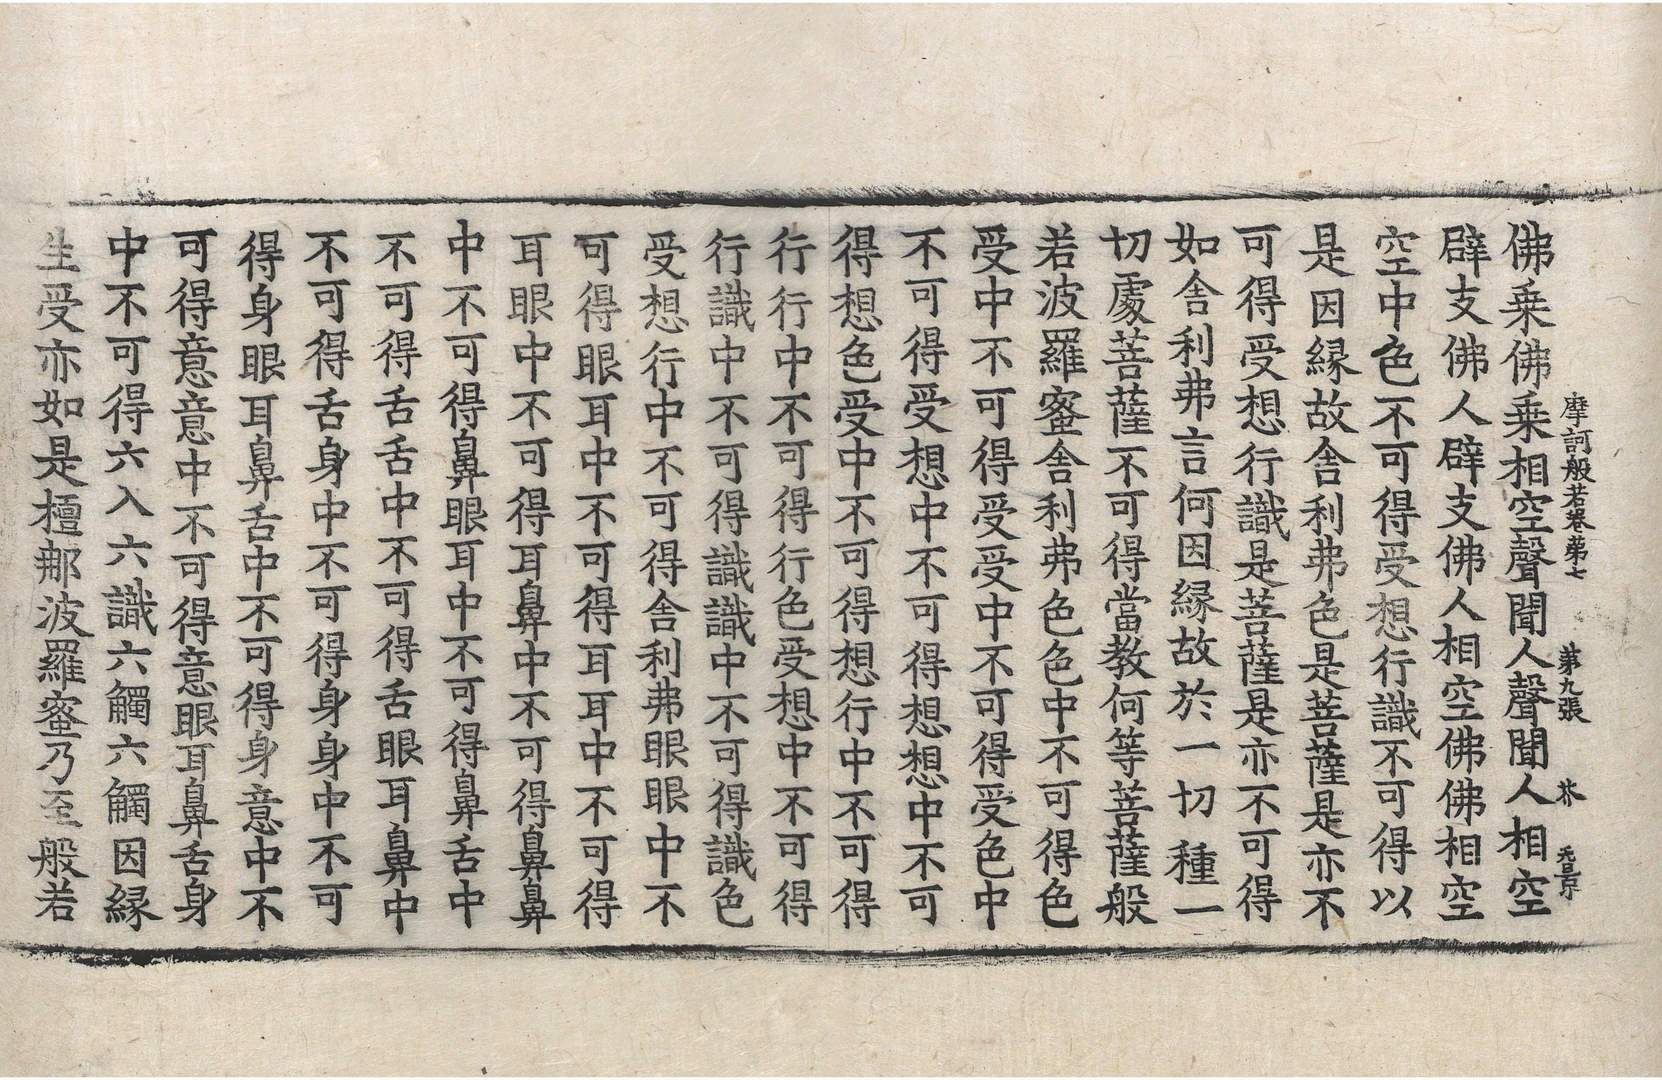 摩訶般若卷第七 第九張 芥
佛乘佛乘相空聲聞人聲聞人相空
辟支佛人辟支佛人相空佛佛相空
空中色不可得受想行識不可得以
是因縁故舎利弗色是菩薩是亦不
可得受想行識是菩薩是亦不可得
如舎利弗言何因縁故於一切種一
切處菩薩不可得當教何等菩薩般
若波羅蜜舎利弗色色中不可得色
受中不可得受受中不可得受色中
不可得受想中不可得想想中不可
得想色受中不可得想行中不可得
行行中不可得行色受想中不可得
行識中不可得識識中不可得識色
受想行中不可得舎利弗眼眼中不
可得眼耳中不可得耳耳中不可得
耳眼中不可得耳鼻中不可得鼻鼻
中不可得鼻眼耳中不可得鼻舌中
不可得舌舌中不可得舌眼耳鼻中
不可得舌身中不可得身身中不可
得身眼耳鼻舌中不可得身意中不
可得意意中不可得意眼耳鼻舌身
中不可得六入六識六觸六觸因縁
生受亦如是檀那波羅蜜乃至般若